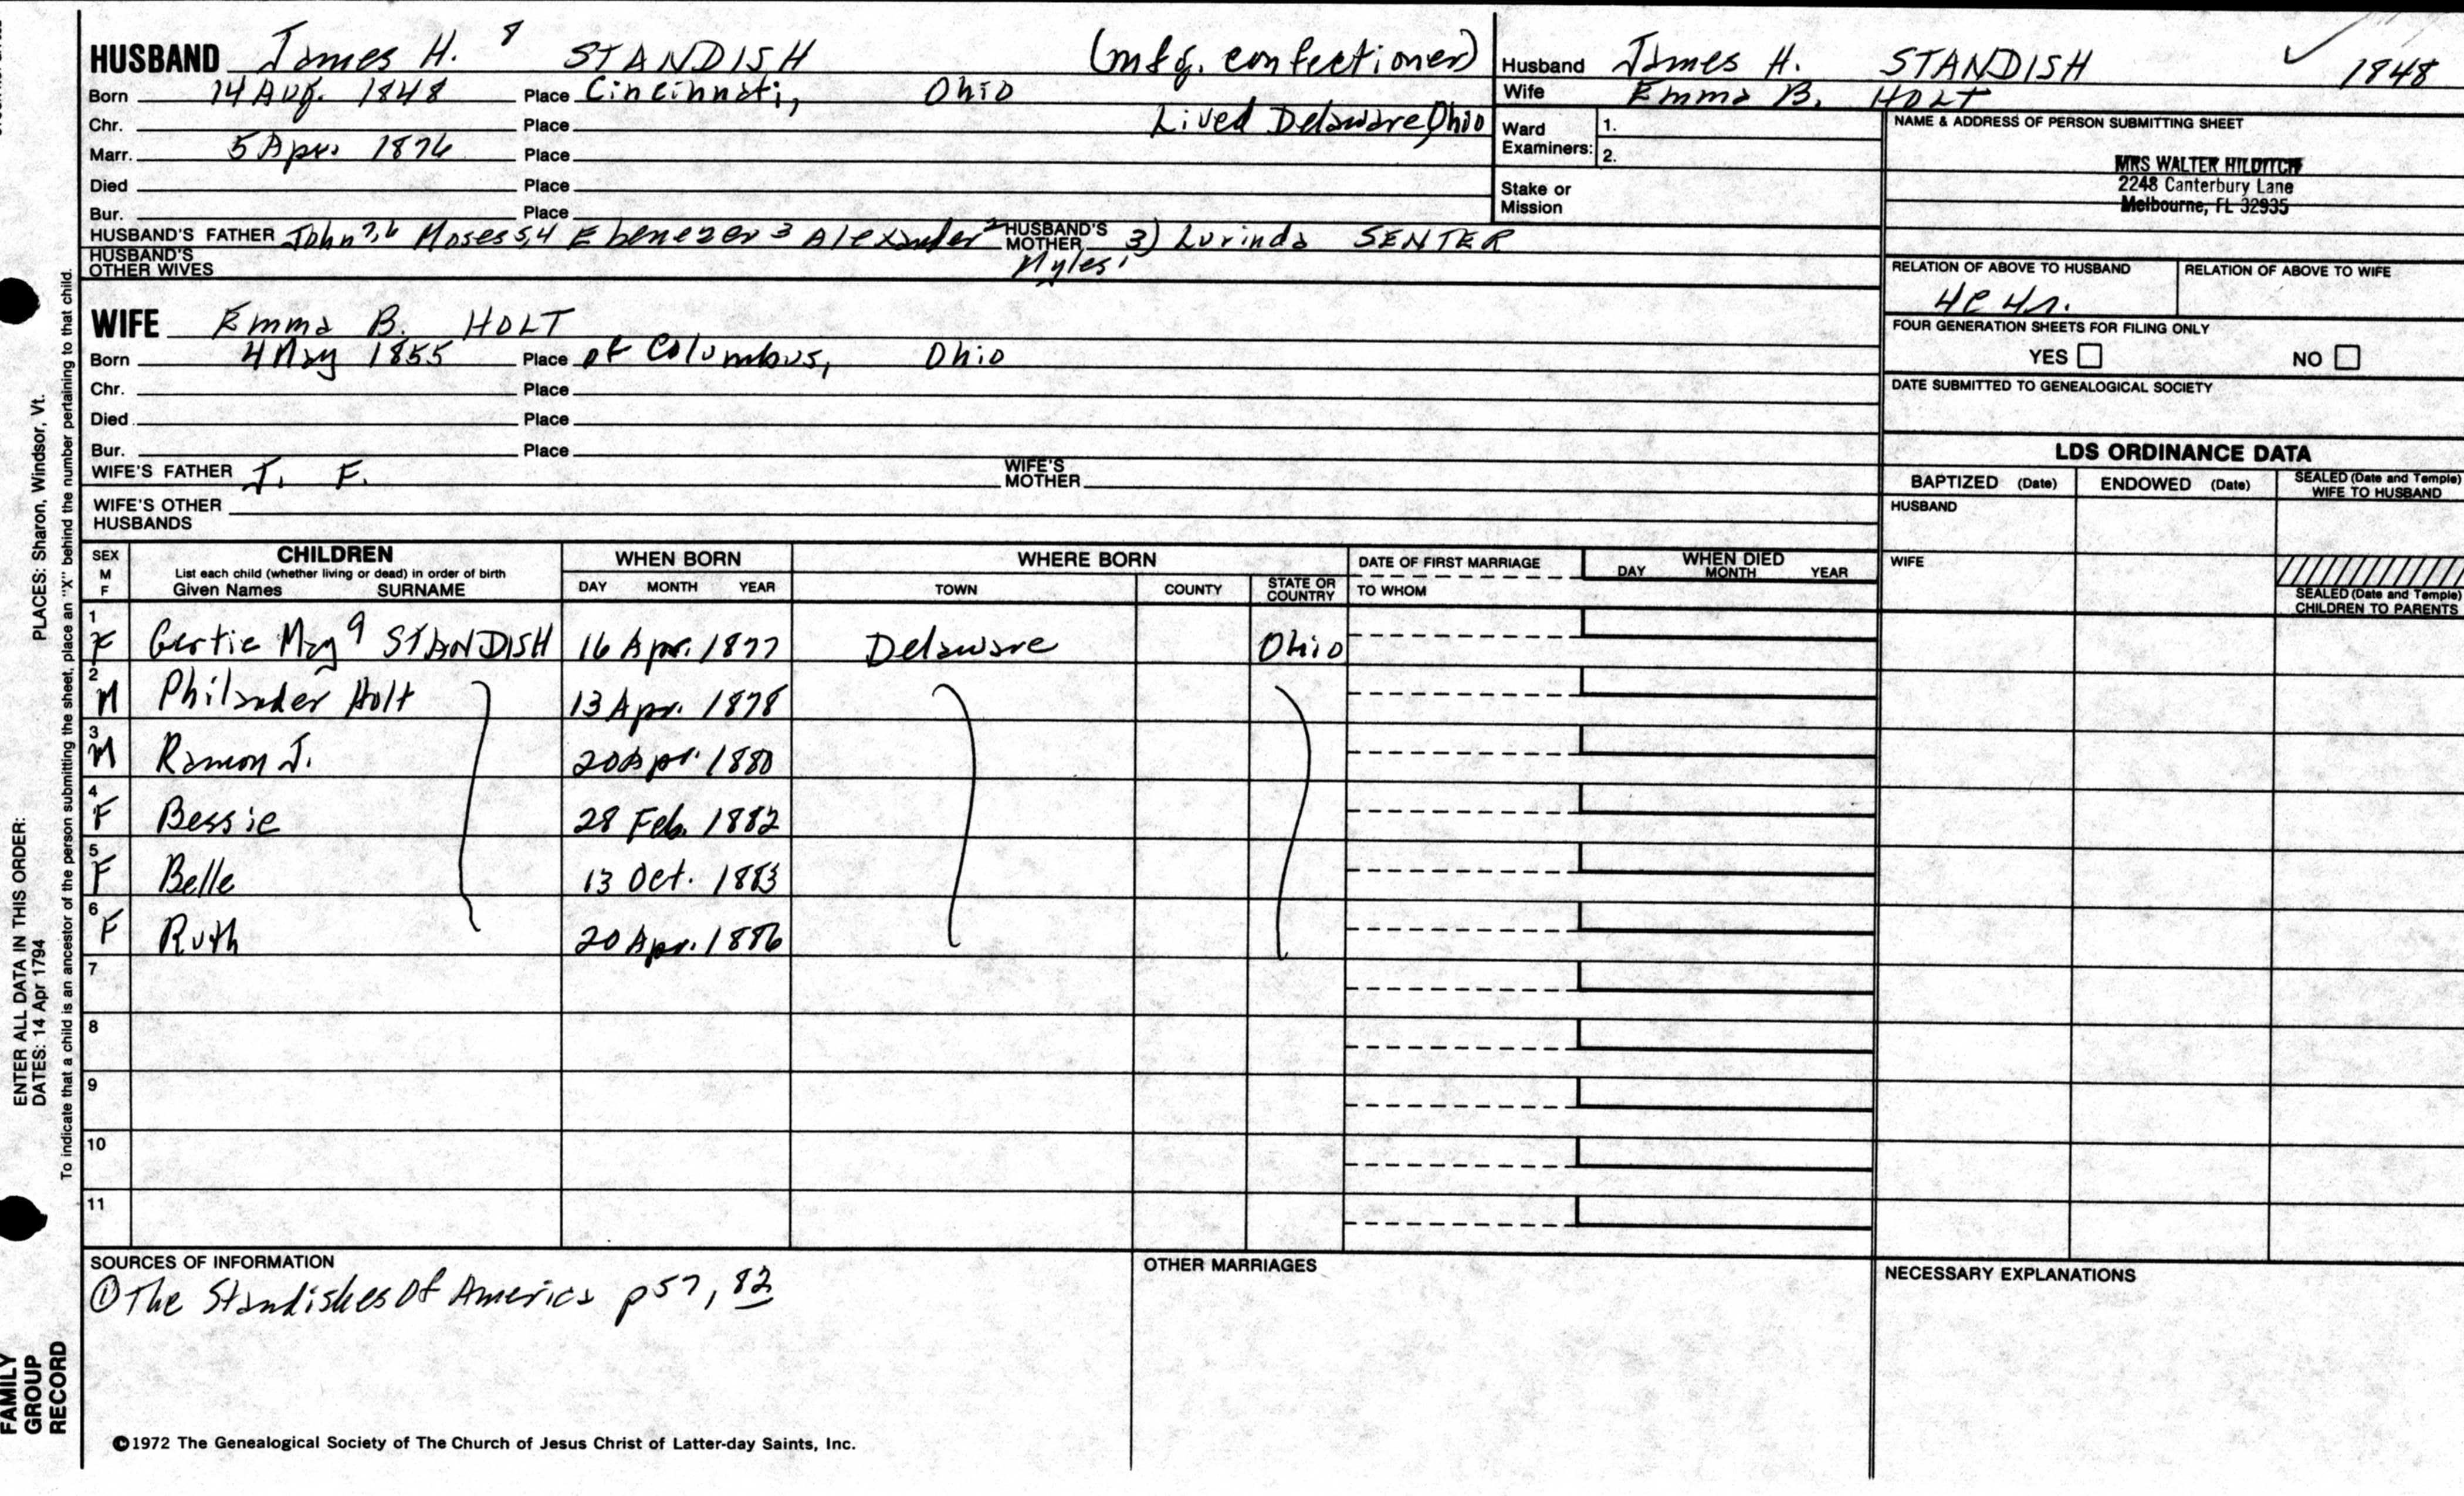 HUSBAND James H. 8 STANDISH (mfg. confectioner)
Born 14 Aug. 1848 Place Cincinnati, Ohio
Chr. Place Lived Delaware, Ohio
Marr. 5 Apr. 1876 Place
Died Place
Bur. Place
HUSBAND'S FATHER John 7,6 Moses 5,4 Ebenezer 3 Alexander 2 HUSBAND'S MOTHER 3) Lurinda SENTER
Myles 1
HUSBAND'S OTHER WIVES
WIFE Emma B. HOLT
Born 4 May 1855 Place of Columbus, Ohio
Chr. Place
Died Place
Bur. Place
WIFE'S FATHER J. F. WIFE'S MOTHER
WIFE'S OTHER HUSBANDS
Husband James H. STANDISH 1848
Wife Emma B. HOLT
Ward Examiners: 1.
2.
Stake or Mission
NAME & ADDRESS OF PERSON SUBMITTING SHEET
MRS WALTER HILDITCH
2248 Canterbury Lane
Melbourne, FL 32935
RELATION OF ABOVE TO HUSBAND RELATION OF ABOVE TO WIFE
4c 4r.
FOUR GENERATION SHEETS FOR FILING ONLY
YES NO
DATE SUBMITTED TO GENEALOGICAL SOCIETY
LDS ORDINANCE DATA
BAPTIZED (Date) ENDOWED (Date) SEALED (Date and Temple) WIFE TO HUSBAND
HUSBAND
WIFE
SEALED (Date and Temple) CHILDREN TO PARENTS
SEX M F
CHILDREN
List each child (whether living or dead) in order of birth
Given Names SURNAME
WHEN BORN
DAY MONTH YEAR
WHERE BORN
TOWN COUNTY STATE OR COUNTRY
DATE OF FIRST MARRIAGE
TO WHOM
WHEN DIED
DAY MONTH YEAR
1 F Gertie May 9 STANDISH 16 Apr. 1877 Delaware Ohio
2 M Philander Holt 13 Apr. 1878
3 M Ramon J. 20 Apr. 1880
4 F Bessie 28 Feb. 1882
5 F Belle 13 Oct. 1883
6 F Ruth 20 Apr. 1886
7
8
9
10
11
SOURCES OF INFORMATION
① The Standishes Of America p 57, 82
OTHER MARRIAGES
NECESSARY EXPLANATIONS
©1972 The Genealogical Society of The Church of Jesus Christ of Latter-day Saints, Inc.
ENTER ALL DATA IN THIS ORDER:
DATES: 14 Apr 1794 PLACES: Sharon, Windsor, Vt.
To indicate that a child is an ancestor of the person submitting the sheet, place an "X" behind the number pertaining to that child.
FAMILY
GROUP
RECORD